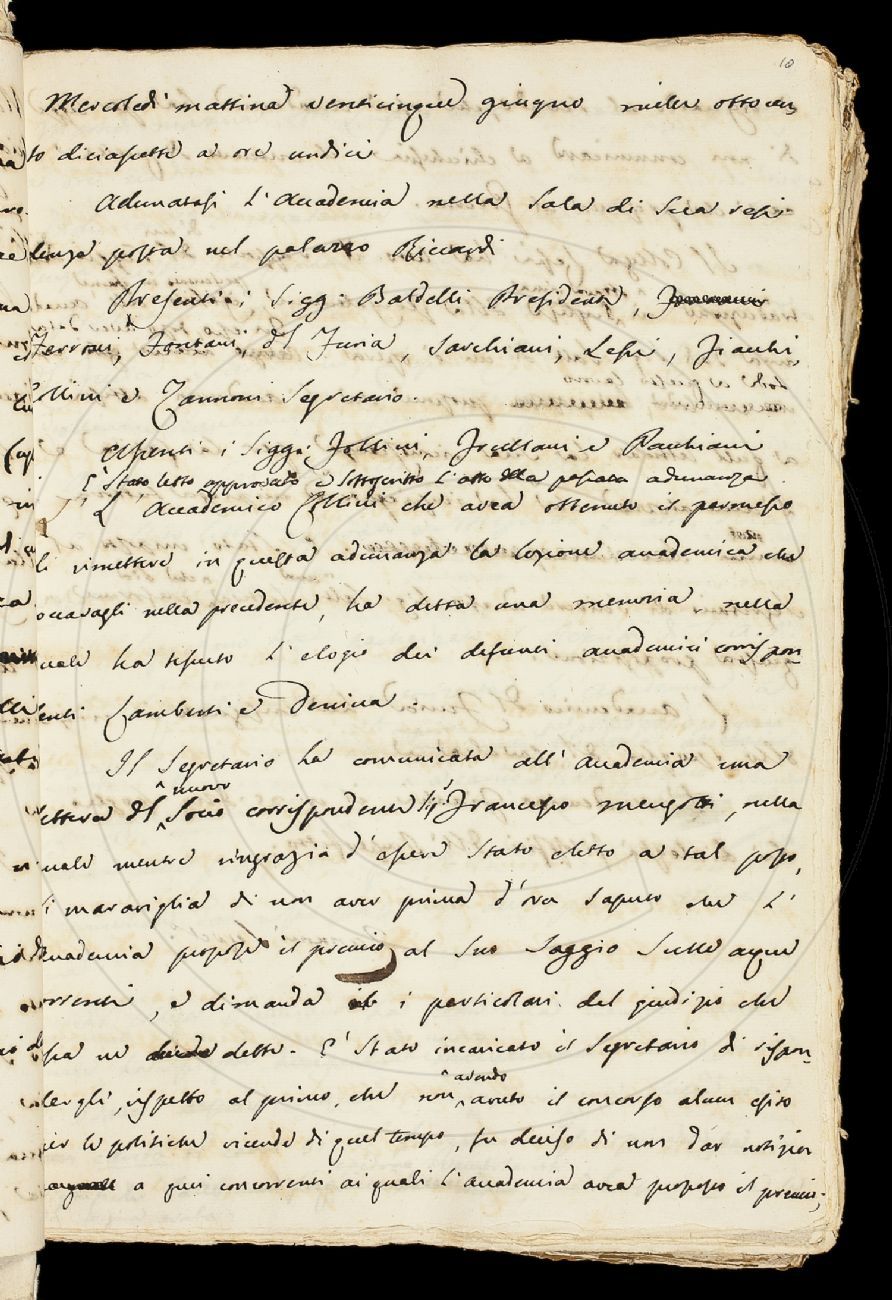 10
Mercoledì mattina venticinque giugno mille ottocen,
to diciasette a ore undici
Adunatasi l'Accademia nella Sala di sua resi-
denza posta nel palazzo Riccardi
Presenti i Sigg: Baldelli Presidente,
Ferroni, Fontani, del Furia, Sarchiani, Lessi, Fiacchi,
Collini e Zannoni Segretario.
Assenti i Sigg: Follini, Frullani e Pacchiani
E' stato letto approvato e sottoscritto l'atto della passata adunanza
L'Accademico Collini che avea ottenuto il permesso
di rimettere in questa adunanza la lezione accademica che
toccavagli nella precedente, ha detta una memoria, nella
quale ha tessuto l'elogio dei defunti accademici corrispon-
denti Lamberti e Denina.
Il Segretario ha comunicata all'Accademia una
lettera del nuovo Socio corrispondente Sig.r Francesco Mengotti, nella
quale mentre ringrazia d'essere stato eletto a tal posto,
si maraviglia di non aver prima d'ora saputo che l'
Accademia propose il premio al suo Saggio sulle acque
correnti, e dimanda i particolari del giudizio che
essa ne dette. E' stato incaricato il Segretario di rispon-
dergli, rispetto al primo, che non avendo avuto il concorso alcun esito
per le politiche vicende di quel tempo, fu deciso di non dar notizia
a quei concorrenti ai quali l'accademia avea proposto il premio;